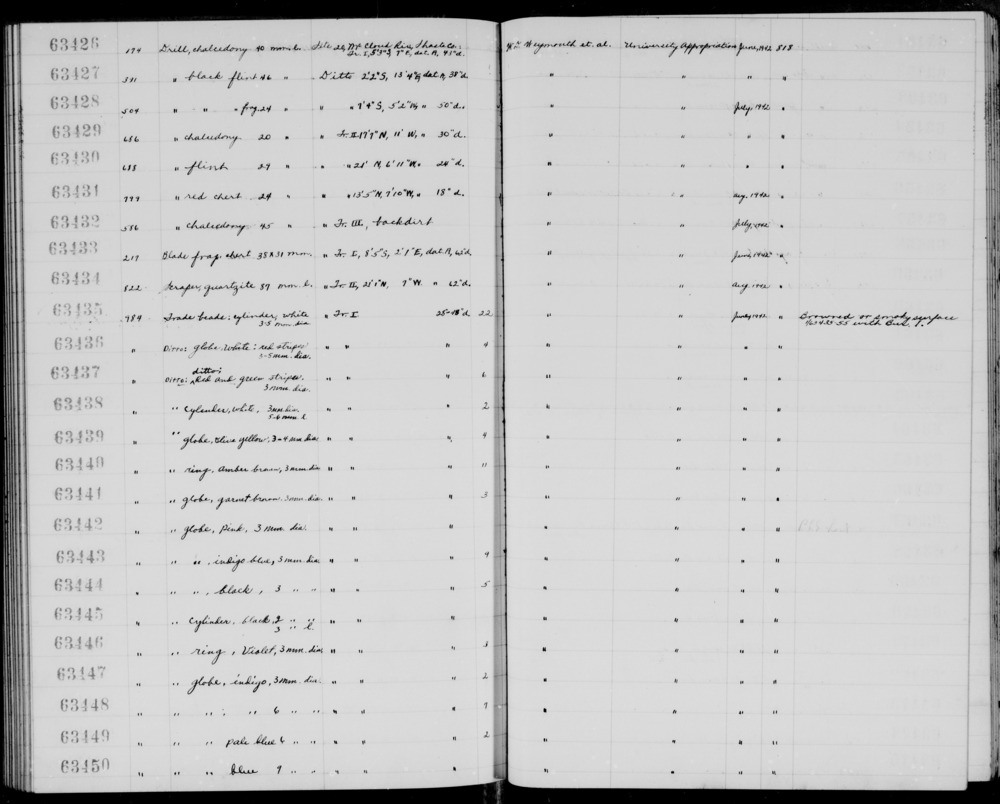 63426 174 Drill, chalcedony 40 mm. L. Site 22, McCloud Riv. Shasta Co. Tr. I, 5'3"S, 7'E, dat. A, 43"d. Wm Weymouth et. al. University Appropriation June, 1942 818
63427 391 " black flint 46 " Ditto 2'2"S, 13'4"E, dat. A, 38"d. " " " "
63428 504 " " " frag. 24 " " " 9'4"S, 5'2"W, " 50"d. " " July, 1942 "
63429 656 " chalcedony 20 " " Tr. II 17'7"N, 11' W, " 30"d. " " " "
63430 688 " flint 27 " " " 28' N, 6'11"W, " 24"d. " " " "
63431 777 " red chert 24 " " " 13'5"N, 7'10"W, " 18"d. " " Aug. 1942 "
63432 586 " chalcedony 45 " " Tr. III, backdirt " " July, 1942 "
63433 217 Blade frag. chert 38 x 31 mm. " Tr. I, 8'5"S, 2'1"E, dat. A, 42"d. " " June, 1942 "
63434 822 Scraper, quartzite 89 mm. L. " Tr. II, 28'1"N, 7" W. " 62"d. " " Aug. 1942 "
63435 984 Trade beads: cylinder, white " Tr. I 28-48"d 22 " " June, 1942 " Browned or smoky surface
3-5 mm. dia 63435-55 with Bur. 1.
63436 " Ditto: globe. White: red stripes " " " 4 " " " "
3-5 mm. dia.
63437 " Ditto: ditto: Red and green stripes. " " " 6 " " " "
3 mm. dia.
63438 " " cylinder, white, 3 mm dia. " " " 2 " " " "
5-6 mm l
63439 " " globe, Olive yellow, 3-4 mm dia " " " 4 " " " "
63440 " " ring, Amber brown, 3 mm dia " " " 11 " " " "
63441 " " globe, garnet brown 3 mm. dia. " " " 3 " " " "
63442 " " globe, Pink, 3 mm dia. " " " " " " "
63443 " " ", indigo blue, 3 mm dia " " " 4 " " " "
63444 " " ", black, 3 " " " " " 5 " " " "
63445 " " cylinder, black, 2 " " " " " " " " "
3 " l.
63446 " " ring, Violet, 3 mm. dia " " " 3 " " " "
63447 " " globe, indigo, 3 mm. dia. " " " 2 " " " "
63448 " " " " 6 " " " " " 7 " " " "
63449 " " " pale blue 6 " " " " " 2 " " " "
63450 " " " blue 9 " " " " " " " " "